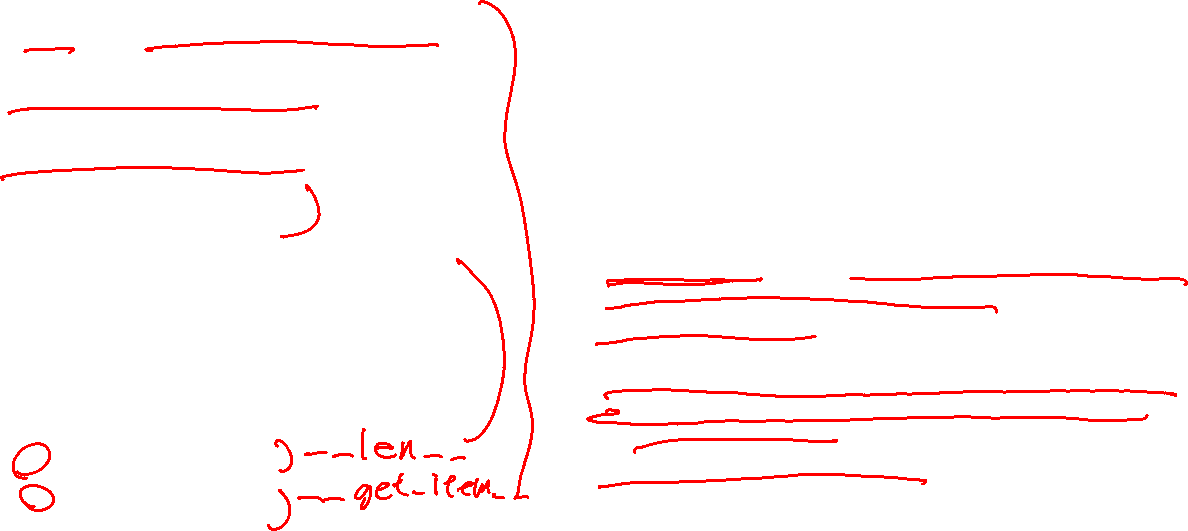 __len__
__get_item__